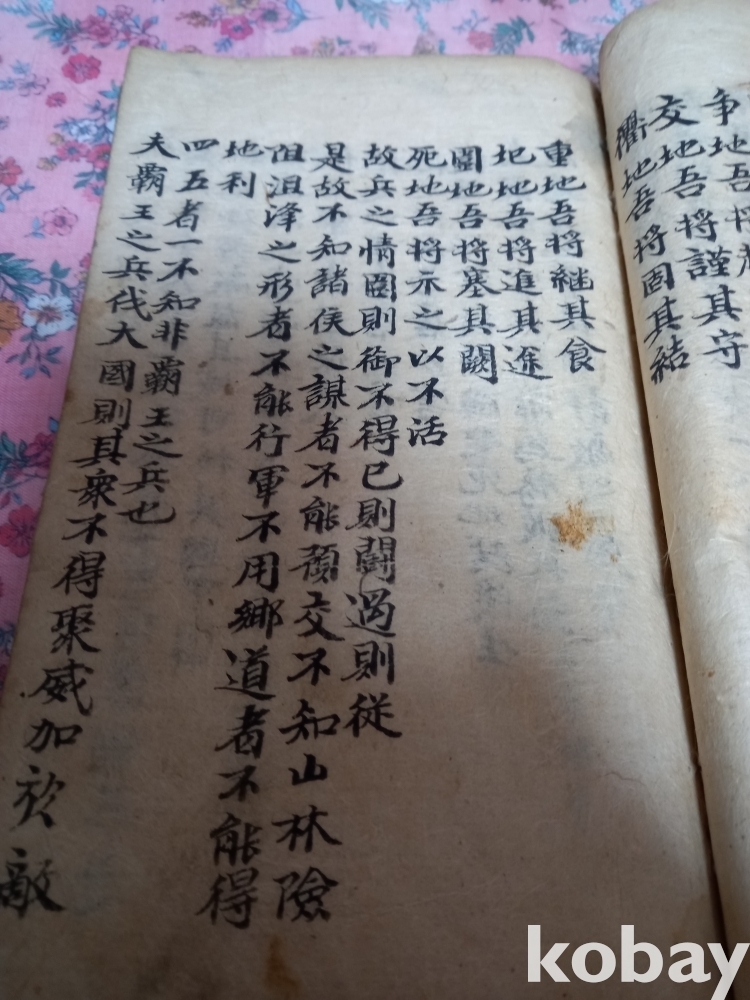 争地吾将
交地吾将謹其守
衢地吾将固其結
重地吾将継其食
圯地吾将進其途
圍地吾将塞其闕
死地吾将示之以不活
故兵之情圍則御不得已則闘過則従
是故不知諸侯之謀者不能預交不知山林險
阻沮泽之形者不能行軍不用郷道者不能得
地利
四五者一不知非霸王之兵也
夫霸王之兵伐大國則其衆不得聚威加於敵
kobay